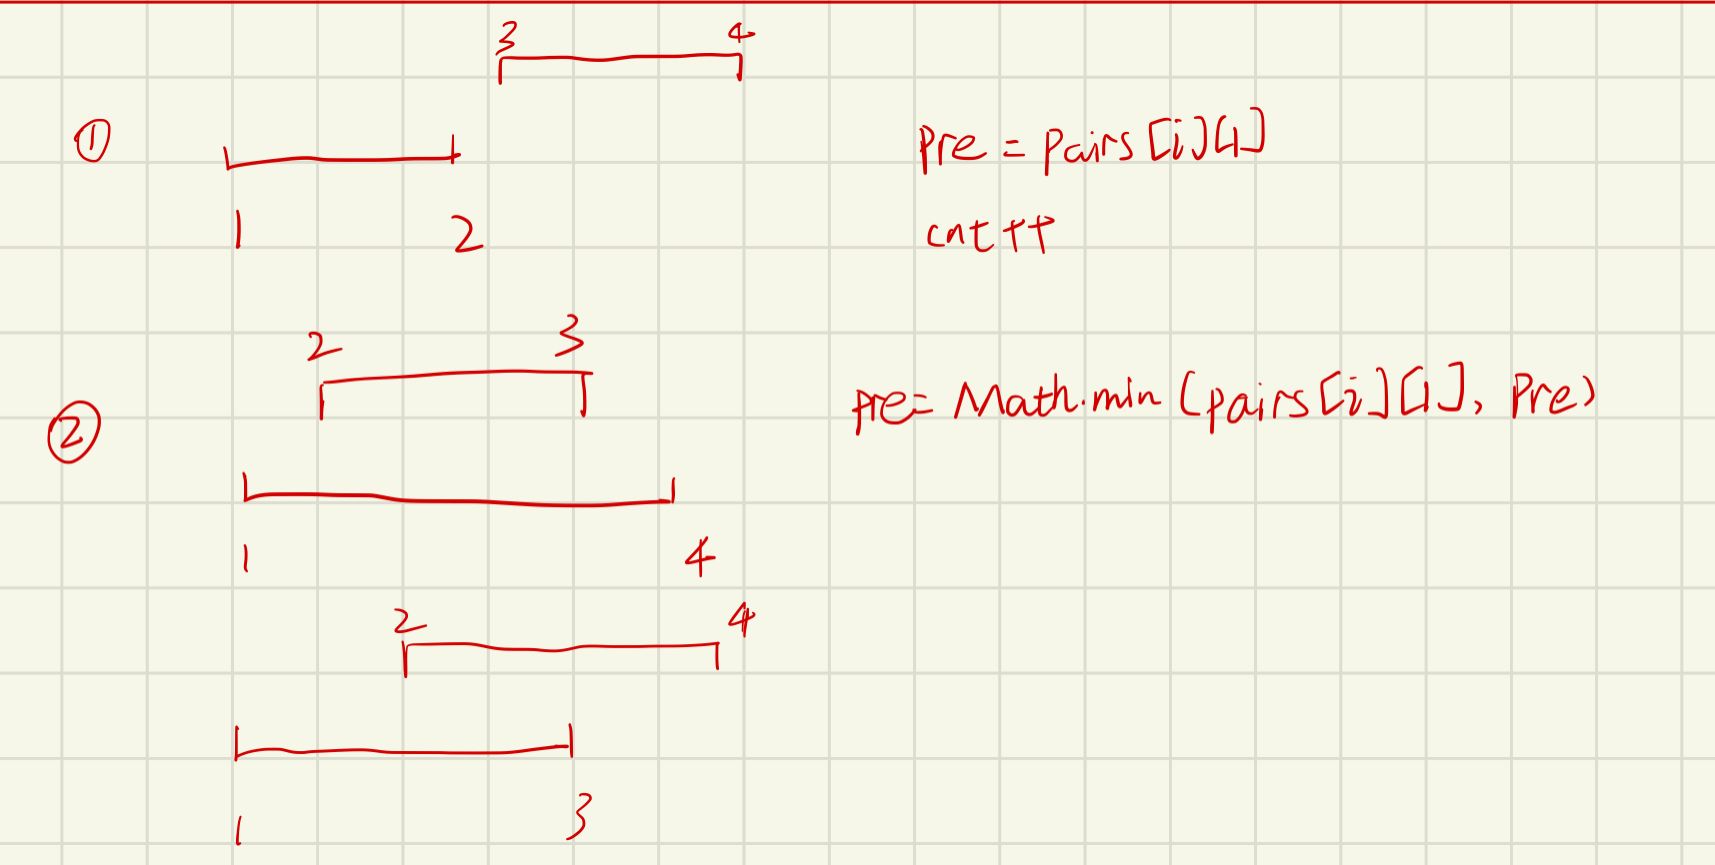 3 4
①
pre = pairs[i][1]
1 2
cnt++
2 3
②
pre= Math.min (pairs[i][1], Pre)
1 4
2 4
1 3